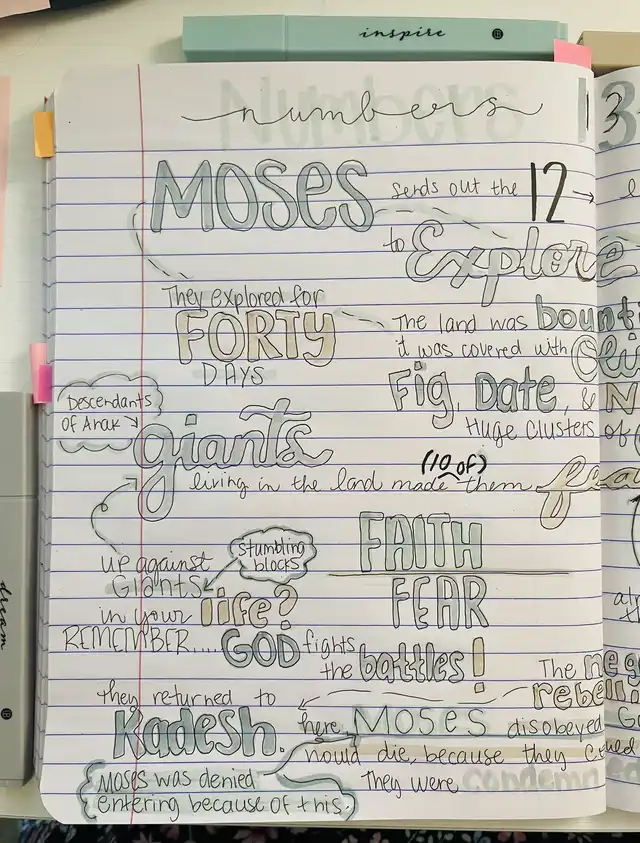 inspire
numbers 13
Numbers
MOSES sends out the 12 →
to Explore
They explored for
FORTY
DAYS
The land was
it was covered with
Fig, Date, & N
HUGE CLUSTERS OF
Descendants
OF Anak →
giants
(10 of)
living in the land made them
FAITH
FEAR
up against
Giants
in your life?
stumbling
blocks
REMEMBER.... GOD fights
the battles!
The
they returned to
Kadesh.
here, MOSES disobeyed
would die, because they
They were
Moses was denied
entering because of this.
dream